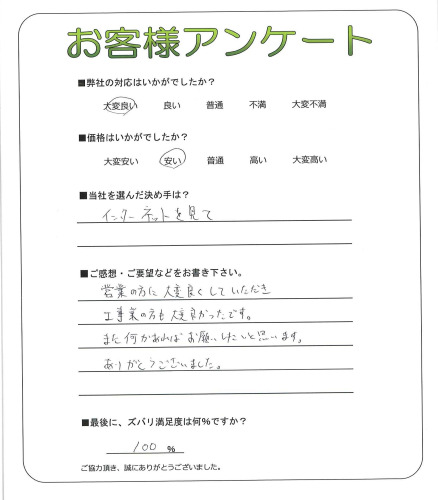 お客様アンケート
■弊社の対応はいかがでしたか？
大変良い　良い　普通　不満　大変不満
■価格はいかがでしたか？
大変安い　安い　普通　高い　大変高い
■当社を選んだ決め手は？
インターネットを見て
■ご感想・ご要望などをお書き下さい。
営業の方に大変良くしていただき
工事業の方も大変良かったです。
また何かあればお願いしたいと思います。
ありがとうございました。
■最後に、ズバリ満足度は何%ですか？
100 %
ご協力頂き、誠にありがとうございました。